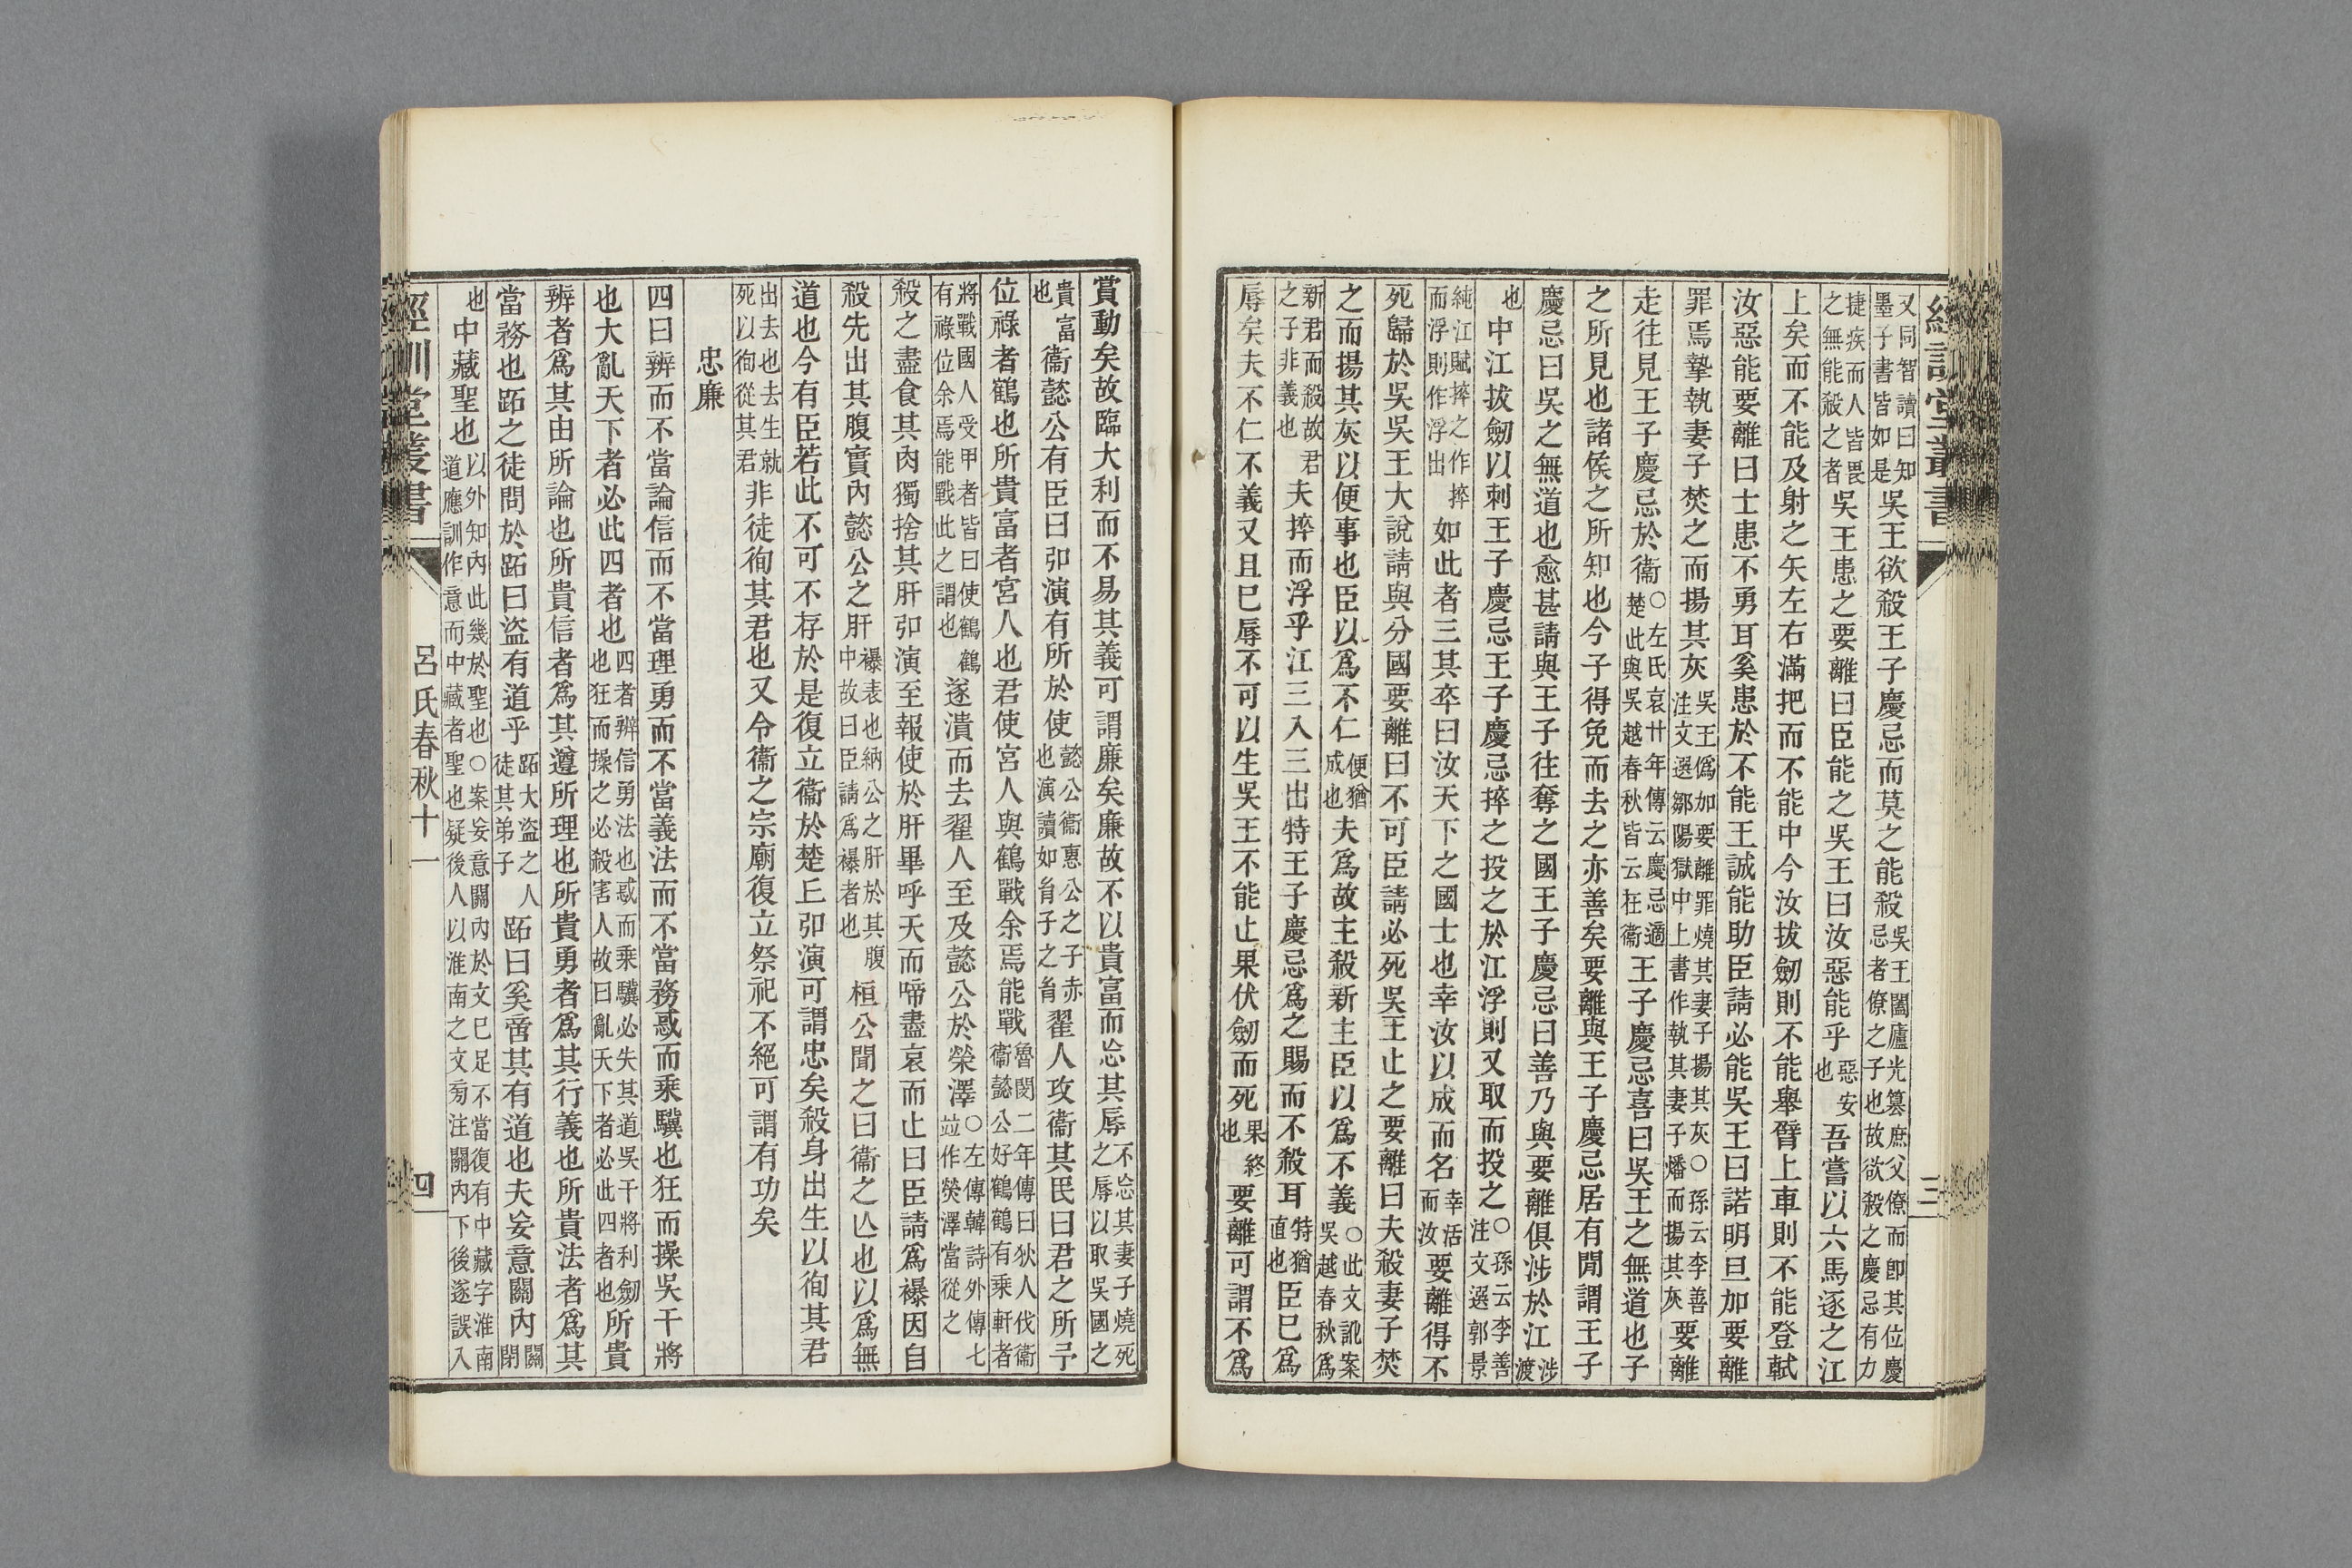 經訓堂叢書
三
又同智讀曰知墨子書皆如是吳王欲殺王子慶忌而莫之能殺吳王闔廬光篡庶父僚而卽其位慶忌者僚之子也故欲殺之慶忌有力
捷疾而人皆畏之無能殺之者吳王患之要離曰臣能之吳王曰汝惡能乎惡安也吾嘗以六馬逐之江
上矣而不能及射之矢左右滿把而不能中今汝拔劒則不能舉臂上車則不能登軾
汝惡能要離曰士患不勇耳奚患於不能王誠能助臣請必能吳王曰諾明旦加要離
罪焉摯執妻子焚之而揚其灰吳王僞加要離罪燒其妻子揚其灰○孫云李善注文選鄒陽獄中上書作執其妻子燔而揚其灰要離
走往見王子慶忌於衞○左氏哀廿年傳云慶忌適楚此與吳越春秋皆云在衞王子慶忌喜曰吳王之無道也子
之所見也諸侯之所知也今子得免而去之亦善矣要離與王子慶忌居有閒謂王子
慶忌曰吳之無道也愈甚請與王子往奪之國王子慶忌曰善乃與要離俱涉於江涉渡
也中江拔劒以刺王子慶忌王子慶忌捽之投之於江浮則又取而投之○孫云李善注文選郭景
純江賦捽之作捽而浮則作浮出如此者三其卒曰汝天下之國士也幸汝以成而名幸活而汝要離得不
死歸於吳吳王大說請與分國要離曰不可臣請必死吳王止之要離曰夫殺妻子焚
之而揚其灰以便事也臣以爲不仁便猶成也夫爲故主殺新主臣以爲不義○此文訛案吳越春秋爲
新君而殺故君之子非義也夫捽而浮乎江三入三出特王子慶忌爲之賜而不殺耳特猶直也臣已爲
辱矣夫不仁不義又且已辱不可以生吳王不能止果伏劒而死果終也要離可謂不爲
賞動矣故臨大利而不易其義可謂廉矣廉故不以貴富而忘其辱不忘其妻子燒死之辱以取吳國之
貴富也衞懿公有臣曰弘演有所於使懿公衞惠公之子赤也演讀如胤子之胤翟人攻衞其民曰君之所予
位祿者鶴也所貴富者宮人也君使宮人與鶴戰余焉能戰魯閔二年傳曰狄人伐衞衞懿公好鶴鶴有乘軒者
將戰國人受甲者皆曰使鶴鶴有祿位余焉能戰此之謂也遂潰而去翟人至及懿公於榮澤○左傳韓詩外傳七竝作熒澤當從之
殺之盡食其肉獨捨其肝弘演至報使於肝畢呼天而啼盡哀而止曰臣請爲襮因自
殺先出其腹實內懿公之肝襮表也納公之肝於其腹中故曰臣請爲襮者也桓公聞之曰衞之亾也以爲無
道也今有臣若此不可不存於是復立衞於楚丘弘演可謂忠矣殺身出生以徇其君
出去也去生就死以徇從其君非徒徇其君也又令衞之宗廟復立祭祀不絕可謂有功矣
忠廉
四曰辨而不當論信而不當理勇而不當義法而不當務惑而乘驥也狂而操吳干將
也大亂天下者必此四者也四者辨信勇法也惑而乘驥必失其道吳干將利劒也狂而操之必殺害人故曰亂天下者必此四者也所貴
辨者爲其由所論也所貴信者爲其遵所理也所貴勇者爲其行義也所貴法者爲其
當務也跖之徒問於跖曰盜有道乎跖大盜之人徒其弟子跖曰奚啻其有道也夫妄意關內關閉
也中藏聖也以外知內此幾於聖也○案妄意關內於文已足不當復有中藏字淮南道應訓作意而中藏者聖也疑後人以淮南之文旁注關內下後遂誤入
經訓堂叢書
呂氏春秋十一
四